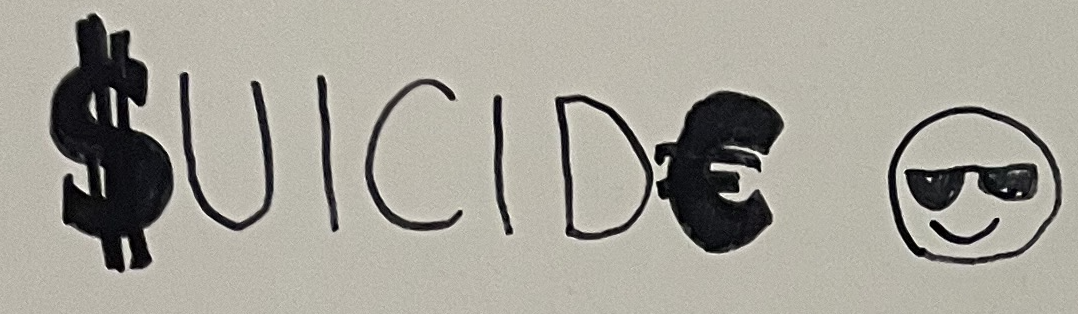 $UICID€ 😎